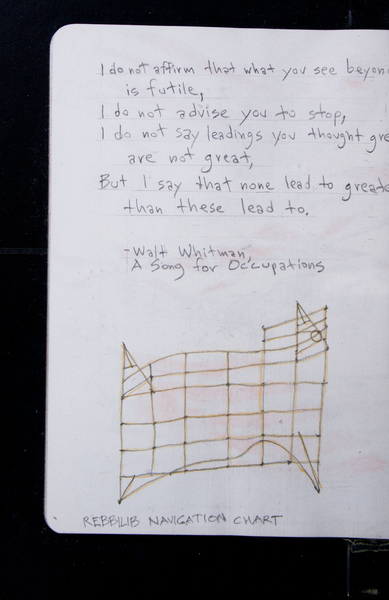 I do not affirm that what you see beyon
is futile,
I do not advise you to stop,
I do not say leadings you thought gre
are not great,
But I say that none lead to greate
than these lead to.
-Walt Whitman,
A Song for Occupations
REBBILIB NAVIGATION CHART